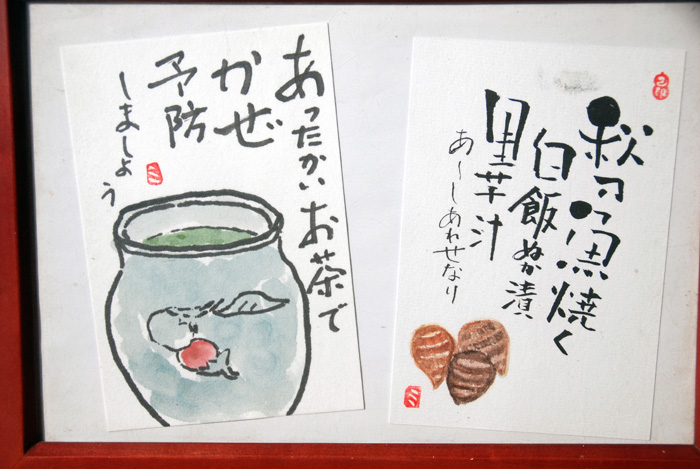 あったかいお茶で
かぜ
予防
しましょう
ミ
秋刀魚焼く
白飯ぬか漬
里芋汁
あ〜しあわせなり
ミ